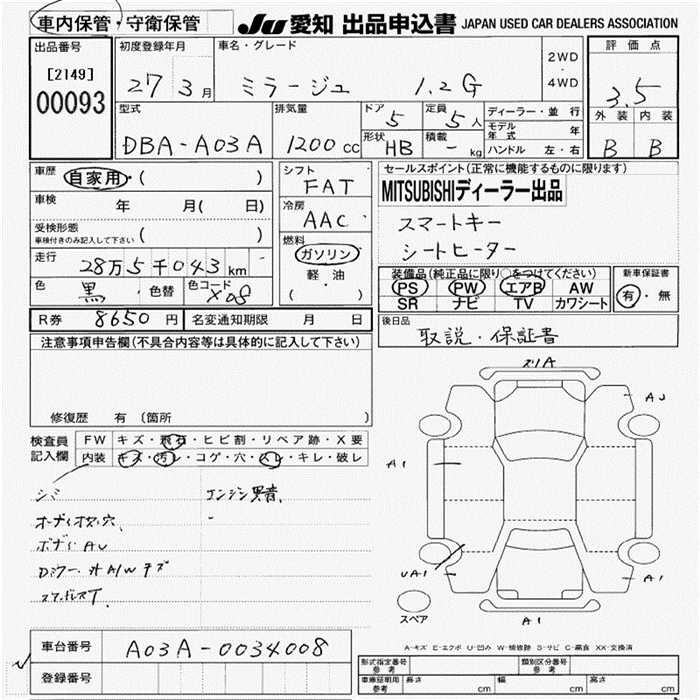 車内保管・守衛保管 JU 愛知 出品申込書 JAPAN USED CAR DEALERS ASSOCIATION
出品番号 [2149] 00093
初度登録年月 27 3月
車名・グレード ミラージュ 1.2G 2WD・4WD
評価点 3.5
外装 B 内装 B
型式 DBA-A03A
排気量 1200cc
ドア 5 定員 5人
形状 HB 積載 - kg
ディーラー・並行
モデル年式 年
ハンドル 左・右
車歴 自家用・( )
車検 年 月( 日)
受検形態 車検付きのみ記入して下さい ( )
走行 28万5千043km
色 黒 色替 色コード X08
シフト FAT
冷房 AAC
燃料 ガソリン・軽油・( )
セールスポイント(正常に機能するものに限ります)
MITSUBISHIディーラー出品
スマートキー
シートヒーター
装備品(純正品に限り○をつけてください)
PS PW エアB AW
SR ナビ TV カワシート
新車保証書 有・無
R券 8650円 名変通知期限 月 日
後日品 取説・保証書
注意事項申告欄(不具合内容等は具体的に記入して下さい)
修復歴 有(箇所 )
検査員記入欄
FW キズ・飛石・ヒビ割・リペア跡・X要
内装 キズ・汚レ・コゲ・穴・スレ・キレ・破レ
シミ エンジン異音、
オーディオ穴
ボディAU
Dミラー・外A/Wキズ
スペアレスT.
ズリA
AU
A1
UA1
A1
A1
スペア
A-キズ E-エクボ U-凹み W-補修跡 S-サビ C-腐食 XX-交換済
車台番号 A03A-0034008
登録番号
形式指定番号 参考 類別区分番号 参考
車庫証明用 参考 長さ cm 幅 cm 高さ cm